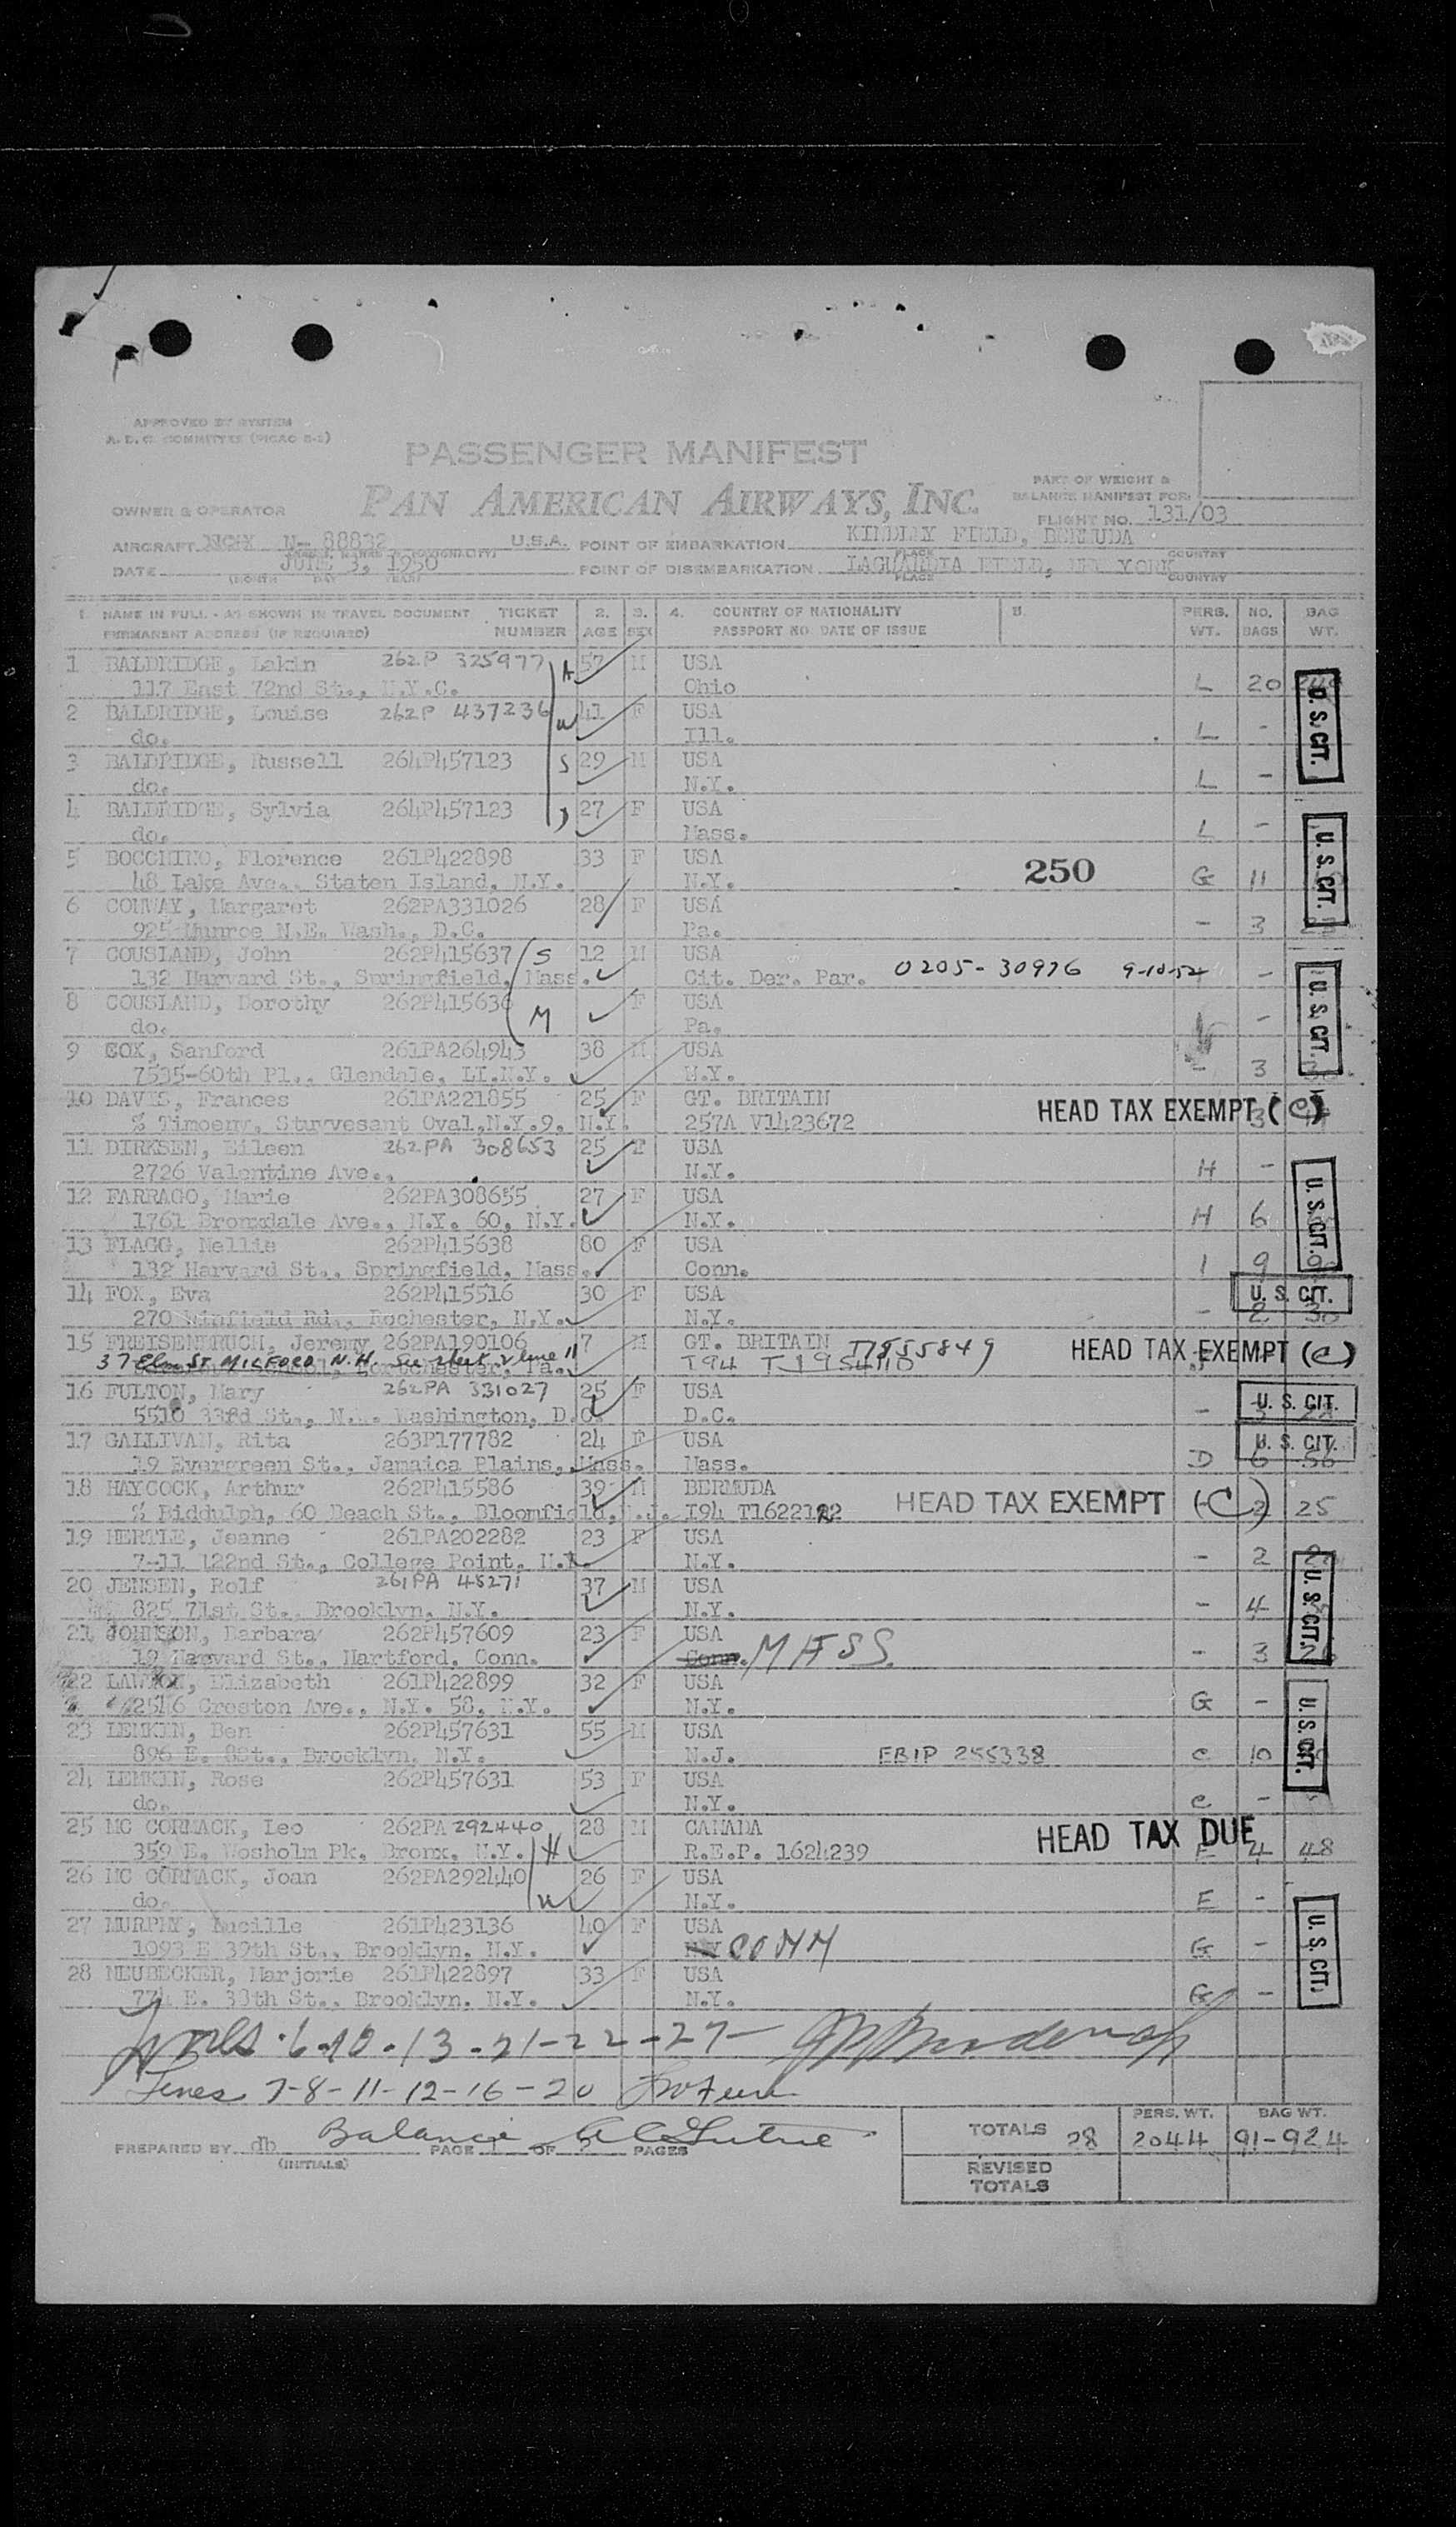 APPROVED BY SYSTEM
A. D. C. COMMITTEE (PICAO 2-2)
PASSENGER MANIFEST
PAN AMERICAN AIRWAYS, INC.
PART OF WEIGHT &
BALANCE MANIFEST FOR:
OWNER & OPERATOR
FLIGHT NO. 131/03
AIRCRAFT N- 88832 U.S.A. POINT OF EMBARKATION KINDLEY FIELD, BERMUDA
PLACE COUNTRY
DATE JUNE 3, 1950 POINT OF DISEMBARKATION LAGUARDIA FIELD, NEW YORK
(MONTH DAY YEAR) PLACE COUNTRY
1. NAME IN FULL - AS SHOWN IN TRAVEL DOCUMENT TICKET 2. 3. 4. COUNTRY OF NATIONALITY 5. PERS. NO. BAG
PERMANENT ADDRESS (IF REQUIRED) NUMBER AGE SEX PASSPORT NO. DATE OF ISSUE WT. BAGS WT.
1 BALDRIDGE, Lakin 262P 325977 57 M USA
117 East 72nd St., N.Y.C. Ohio L 20
2 BALDRIDGE, Louise 262P 437236 W 41 F USA
do. Ill. L -
3 BALDRIDGE, Russell 264P457123 S 29 M USA
do. N.Y. L -
4 BALDRIDGE, Sylvia 264P457123 27 F USA
do. Mass. L -
5 BOCCHINO, Florence 261P422898 33 F USA
48 Lake Ave., Staten Island, N.Y. N.Y. 250 G 11
6 CONWAY, Margaret 262PA331026 28 F USA
925 Munroe N.E. Wash., D.C. Pa. - 3
7 COUSLAND, John 262P415637 S 12 M USA
132 Harvard St., Springfield, Mass. Cit. Der. Par. 0205-30976 9-10-52 -
8 COUSLAND, Dorothy 262P415636 M F USA
do. Pa. -
9 COX, Sanford 261PA264943 38 M USA
7535-60th Pl., Glendale, LI.N.Y. N.Y. - 3
10 DAVIS, Frances 261PA221855 25 F GT. BRITAIN
% Timoeny, Stuyvesant Oval,N.Y.9, N.Y. 257A V1423672 HEAD TAX EXEMPT (C)
11 DIRKSEN, Eileen 262PA 308653 25 F USA
2726 Valentine Ave., N.Y. H -
12 FARRAGO, Marie 262PA308655 27 F USA
1761 Bronxdale Ave., N.Y. 60, N.Y. N.Y. H 6
13 FLAGG, Nellie 262P415638 80 F USA
132 Harvard St., Springfield, Mass. Conn. 1 9
14 FOX, Eva 262P415516 30 F USA
270 Winfield Rd., Rochester, N.Y. N.Y. - 2 30
15 FREISENBRUCH, Jeremy 262PA190106 7 M GT. BRITAIN T7855849
37 Elm ST. MILFORD, N.H. See sheet 2 line 11 HEAD TAX EXEMPT (C)
16 FULTON, Mary 262PA 331027 25 F USA
5510 33rd St., N.W. Washington, D.C. D.C. -
17 GALLIVAN, Rita 263P177782 24 F USA
19 Evergreen St., Jamaica Plains, Mass. Mass. D 6 56
18 HAYCOCK, Arthur 262P415586 39 M BERMUDA
% Biddulph, 60 Beach St., Bloomfield, N.J. I94 T1622122 HEAD TAX EXEMPT (C) 2 25
19 HERTLE, Jeanne 261PA202282 23 F USA
7-11 122nd St., College Point, N.Y. N.Y. - 2
20 JENSEN, Rolf 261PA 48271 37 M USA
825 71st St., Brooklyn, N.Y. N.Y. - 4
21 JOHNSON, Barbara 262P457609 23 F USA
19 Harvard St., Hartford, Conn. Conn. MASS. - 3 26
22 LAWTON, Elizabeth 261P422899 32 F USA
2516 Creston Ave., N.Y. 58, N.Y. N.Y. G -
23 LEMKIN, Ben 262P457631 55 M USA
896 E. 8St., Brooklyn, N.Y. N.J. FBIP 255338 C 10
24 LEMKIN, Rose 262P457631 53 F USA
do. N.Y. C -
25 MC CORMACK, Leo 262PA292440 28 M CANADA
359 E. Mosholm Pk. Bronx, N.Y. H R.E.P. 1624239 HEAD TAX DUE E 4 48
26 MC CORMACK, Joan 262PA292440 26 F USA
do. W N.Y. E -
27 MURPHY, Lucille 261P423136 40 F USA
1093 E 39th St., Brooklyn, N.Y. CONN G -
28 NEUBECKER, Marjorie 261P422897 33 F USA
774 E. 38th St., Brooklyn, N.Y. N.Y. G -
U. S. CIT.
U. S. CIT.
U. S. CIT.
U. S. CIT.
U. S. CIT.
U. S. CIT.
U. S. CIT.
U. S. CIT.
U. S. CIT.
U. S. CIT.
13 - 21 - 22 - 27
Lines 7-8-11-12-16-20
Balance
PREPARED BY db PAGE 1 OF PAGES
(INITIALS)
TOTALS 28 PERS. WT. 2044 BAG WT. 91-924
REVISED
TOTALS